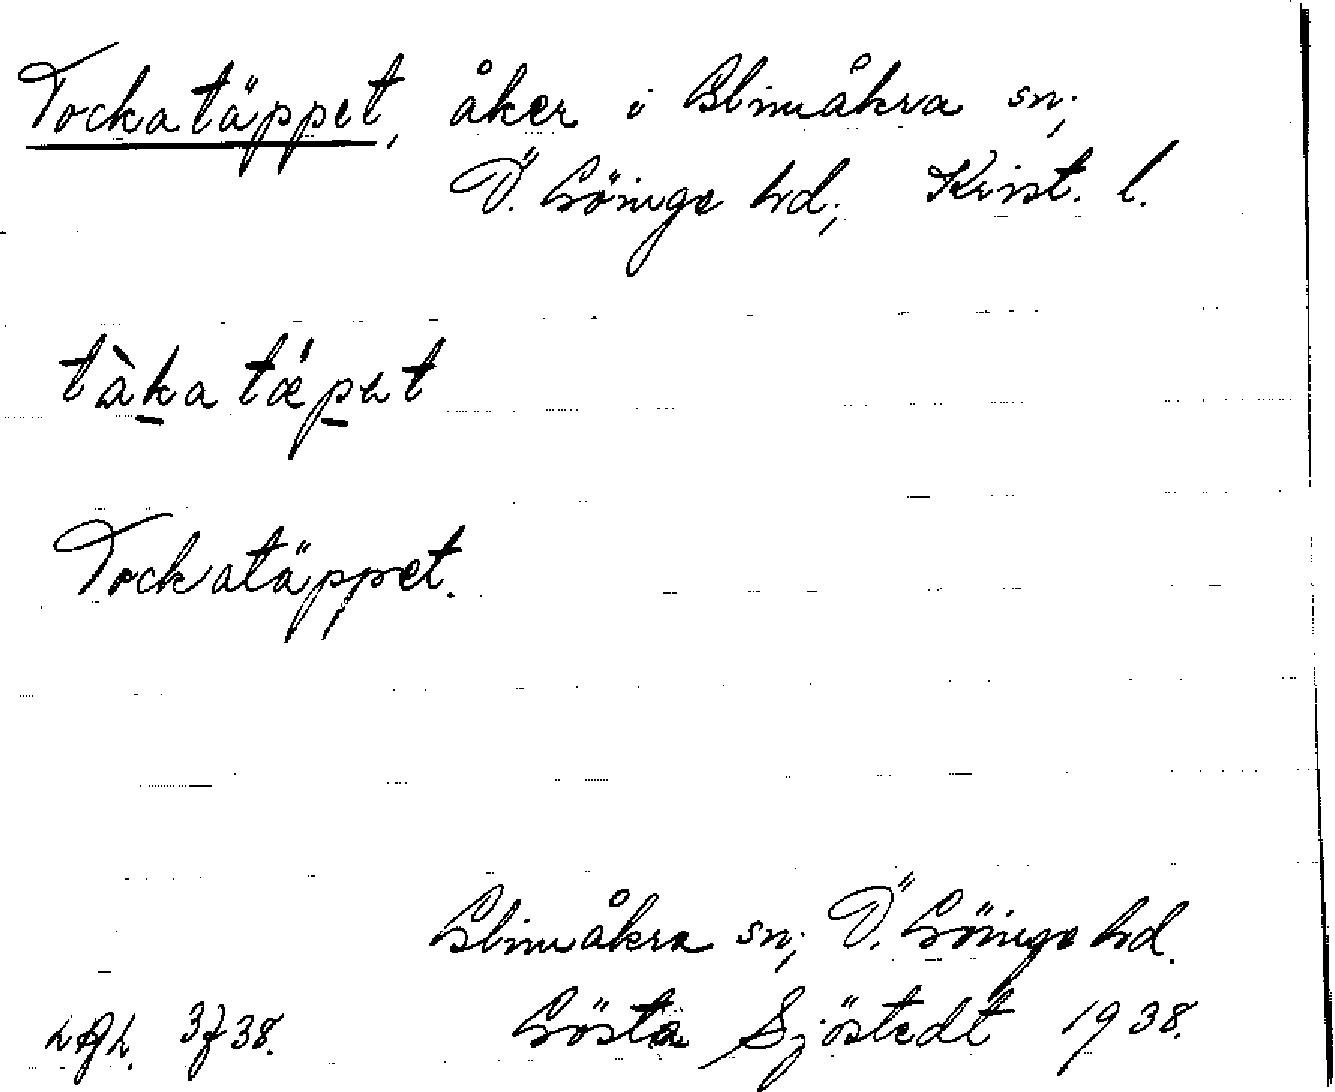 Tockatäppet, åker i Glimåkra sn;
Ö. Göinge hd; Krist. l.
tàka tǽpet
Tockatäppet.
Glimåkra sn; Ö. Göinge hd.
Gösta Sjöstedt 1938.